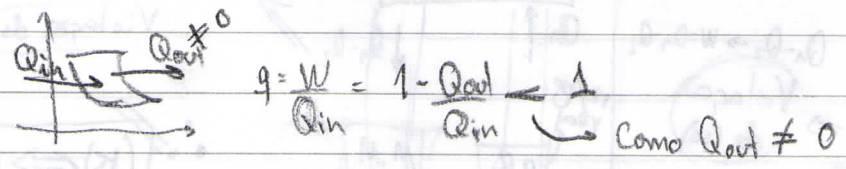 Qin Qout ≠ 0
η = W/Qin = 1 - Qout/Qin < 1
como Qout ≠ 0